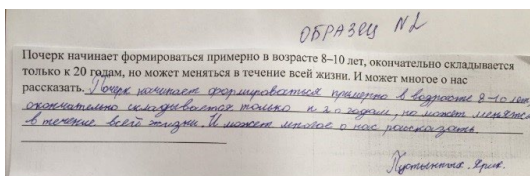 ОБРАЗЕЦ №2
Почерк начинает формироваться примерно в возрасте 8–10 лет, окончательно складывается
только к 20 годам, но может меняться в течение всей жизни. И может многое о нас
рассказать. Почерк начинает формироваться примерно в возрасте 8-10 лет,
окончательно складывается только к 20 годам, но может меняться
в течение всей жизни. И может многое о нас рассказать.